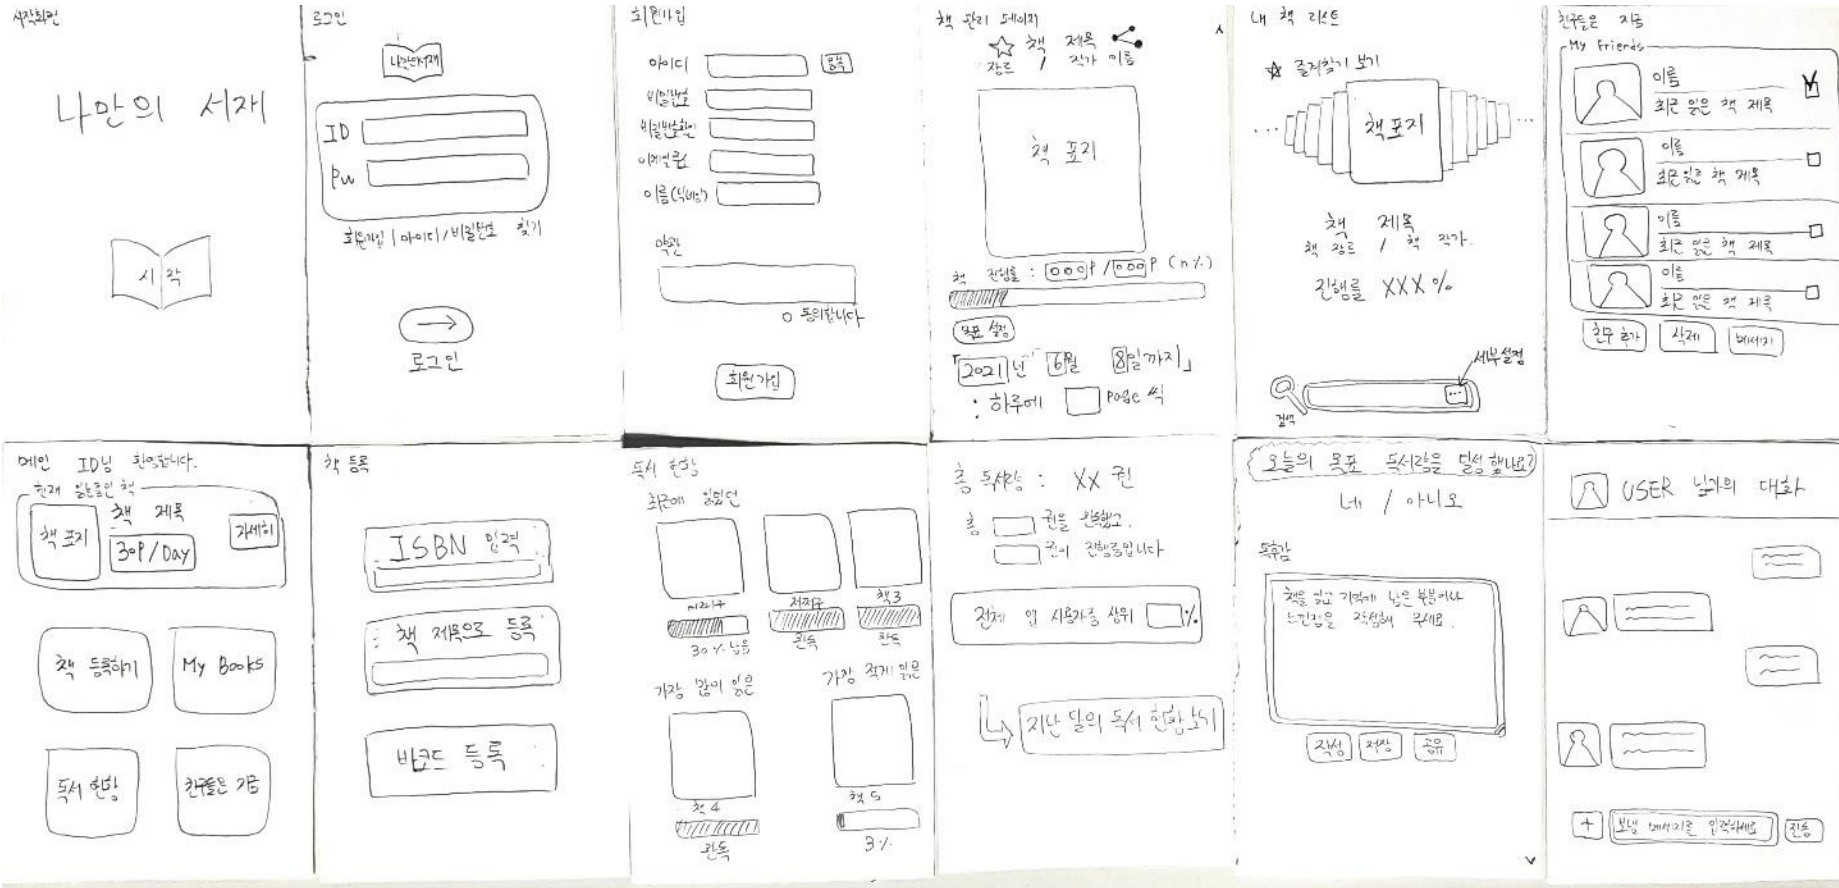 시작화면
나만의 서재
시 작
로그인
나만의서재
ID
PW
회원가입 | 아이디/비밀번호 찾기
로그인
회원가입
아이디
중복
비밀번호
비밀번호확인
이메일주소
이름(닉네임)
약관
동의합니다
회원가입
책 관리 페이지
책 제목
장르 / 작가 이름
책 표지
책 진행률 : 000P / 000P (n%)
목표 설정
「2021년 6월 8일까지」
: 하루에 page 씩
내 책 리스트
즐겨찾기 보기
책표지
책 제목
책 장르 / 책 작가
진행률 XXX%
세부설정
검색
친구들은 지금
My Friends
이름
최근 읽은 책 제목
이름
최근 읽은 책 제목
이름
최근 읽은 책 제목
이름
최근 읽은 책 제목
친구 추가
삭제
메세지
메인 ID님 환영합니다.
현재 읽는중인 책
책 표지
책 제목
30P/Day
자세히
책 등록하기
My Books
독서 현황
친구들은 지금
책 등록
ISBN 입력
책 제목으로 등록
바코드 등록
독서 현황
최근에 읽었던
어쩌구
저쩌구
책3
30% 남음
완독
완독
가장 많이 읽은
가장 적게 읽은
책4
완독
책5
3%
총 독서량 : XX 권
총 권을 완독했고,
권이 진행중입니다
전체 앱 사용자중 상위 %
지난 달의 독서 현황보기
오늘의 목표 독서량을 달성 했나요?
네 / 아니오
독후감
책을 읽고 기억에 남은 부분이나
느낀점을 작성해 주세요.
작성
저장
공유
USER 님과의 대화
+
보낼 메세지를 입력하세요
전송